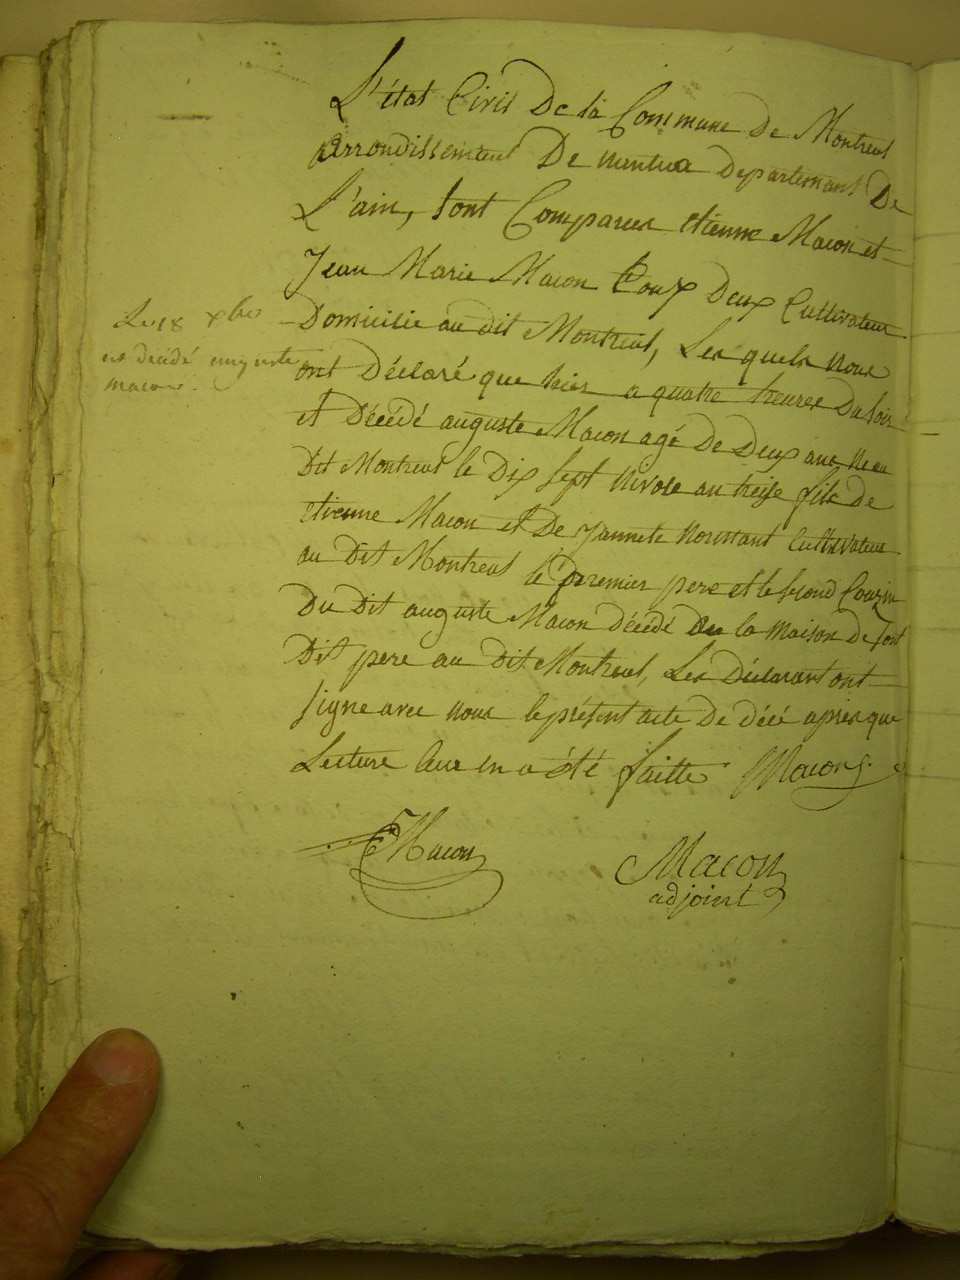 L'état Civil De la Commune De Montreal
arrondissement De nantua Departement De
L'ain, sont Comparus etienne Macon et
Jean Marie Macon toux Deux Cultivateur
Le 18 xbre
Domicilie au dit Montreal, Les quels nous
est décédé auguste
ont Déclaré que hier a quatre heures Du soir
macon.
est Décédé auguste Macon agé De Deux ans Né au
Dit Montreal le Dix sept nivose an treise fils de
etienne Macon et De Jannete Cultivateur
au Dit Montreal le premier pere et le second Couzin
Du Dit auguste Macon décédé la Maison De son
Dit pere au Dit Montreal, Les Déclarant ont
signe avec nous le présent acte De décé après que
Lecture leur en a été faitte Macon
E Macon
Macon
adjoint